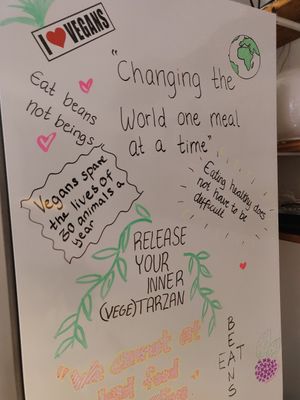 I ♥ VEGANS
Eat beans
not beings
"Changing the
World one meal
at a time"
Vegans spare
the lives of
30 animals a
year
Eating healthy does
not have to be
difficult
RELEASE
YOUR
INNER
(VEGE)TARZAN
BEANS
EAT
"We cannot at
food